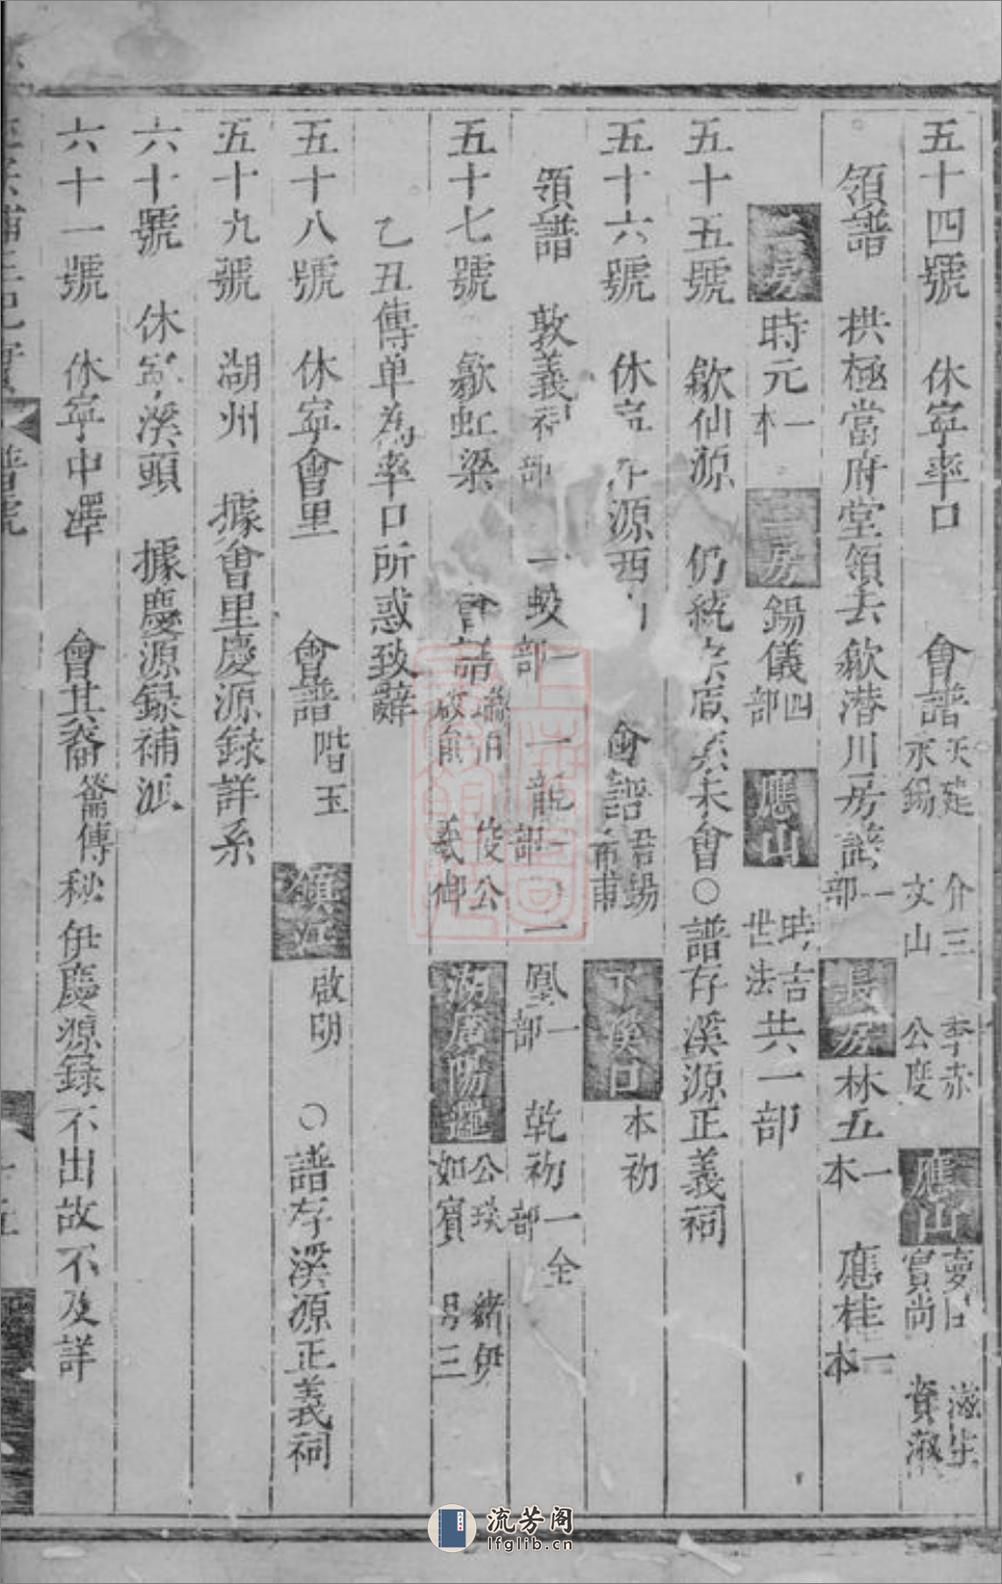 五十四號　休寧率口　會譜　天建　永錫　介三　文山　季赤　公度　應山　夢日　實尚　滋生　資淑
領譜　拱極當府堂領去歙潛川房譜一部　長房　林五一本　應桂一本
二房　時元一本　三房　錫儀四部　應山　時吉　世法　共一部
五十五號　歙仙源　仍統　未會○譜存溪源正義祠
五十六號　休寧　源西　會譜　君錫　甫　下溪口　本初
領譜　敦義祠　部　一蛟一部　一龍一部　一鳳一部　乾初一部　全
五十七號　歙虹梁　會譜　啟俞　俊公　羲御　湖廣陽邏　公琰　如賓　緒伊　三
乙丑傳单為率口所惑致辭
五十八號　休寧會里　會譜　階玉　鎮江　啟明　○譜存溪源正義祠
五十九號　湖州　據會里慶源錄詳系
六十號　休寧溪頭　據慶源録補派
六十一號　休寧中澤　會其裔　崙傳　秘伊慶源録不出故不及詳
譜號
流芳阁
lfglib.cn